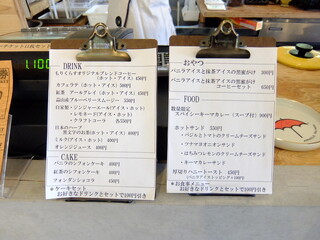 DRINK
もりくらオリジナルブレンドコーヒー
(ホット・アイス) 450円
カフェラテ (ホット・アイス) 500円
紅茶 アールグレイ (ホット・アイス) 450円
島山産ブルーベリースムージー 550円
自家製・ジンジャーエール(ホット・アイス)
・レモネード(アイス・ホット)
・クラフトコーラ 各550円
日本のハーブ
黒文字のお茶(ホット・アイス) 400円
ミルク(アイス・ホット) 400円
オレンジジュース 400円
CAKE
バニラのシフォンケーキ 400円
紅茶のシフォンケーキ 400円
フォンダンショコラ 450円
★ケーキセット
お好きなドリンクとセットで100円引き
おやつ
バニラアイスと抹茶アイスの黒蜜がけ 300円
バニラアイスと抹茶アイスの黒蜜がけ
コーヒーセット 650円
FOOD
数量限定
スパイシーキーマカレー(スープ付) 900円
ホットサンド 550円
・バジルとトマトのクリームチーズサンド
・ツナマヨオニオンサンド
・はちみつレモンのクリームチーズサンド
・キーマカレーサンド
厚切りハニートースト 450円
(バニラアイストッピング+100円)
★お食事メニュー
お好きなドリンクとセットで100円引き